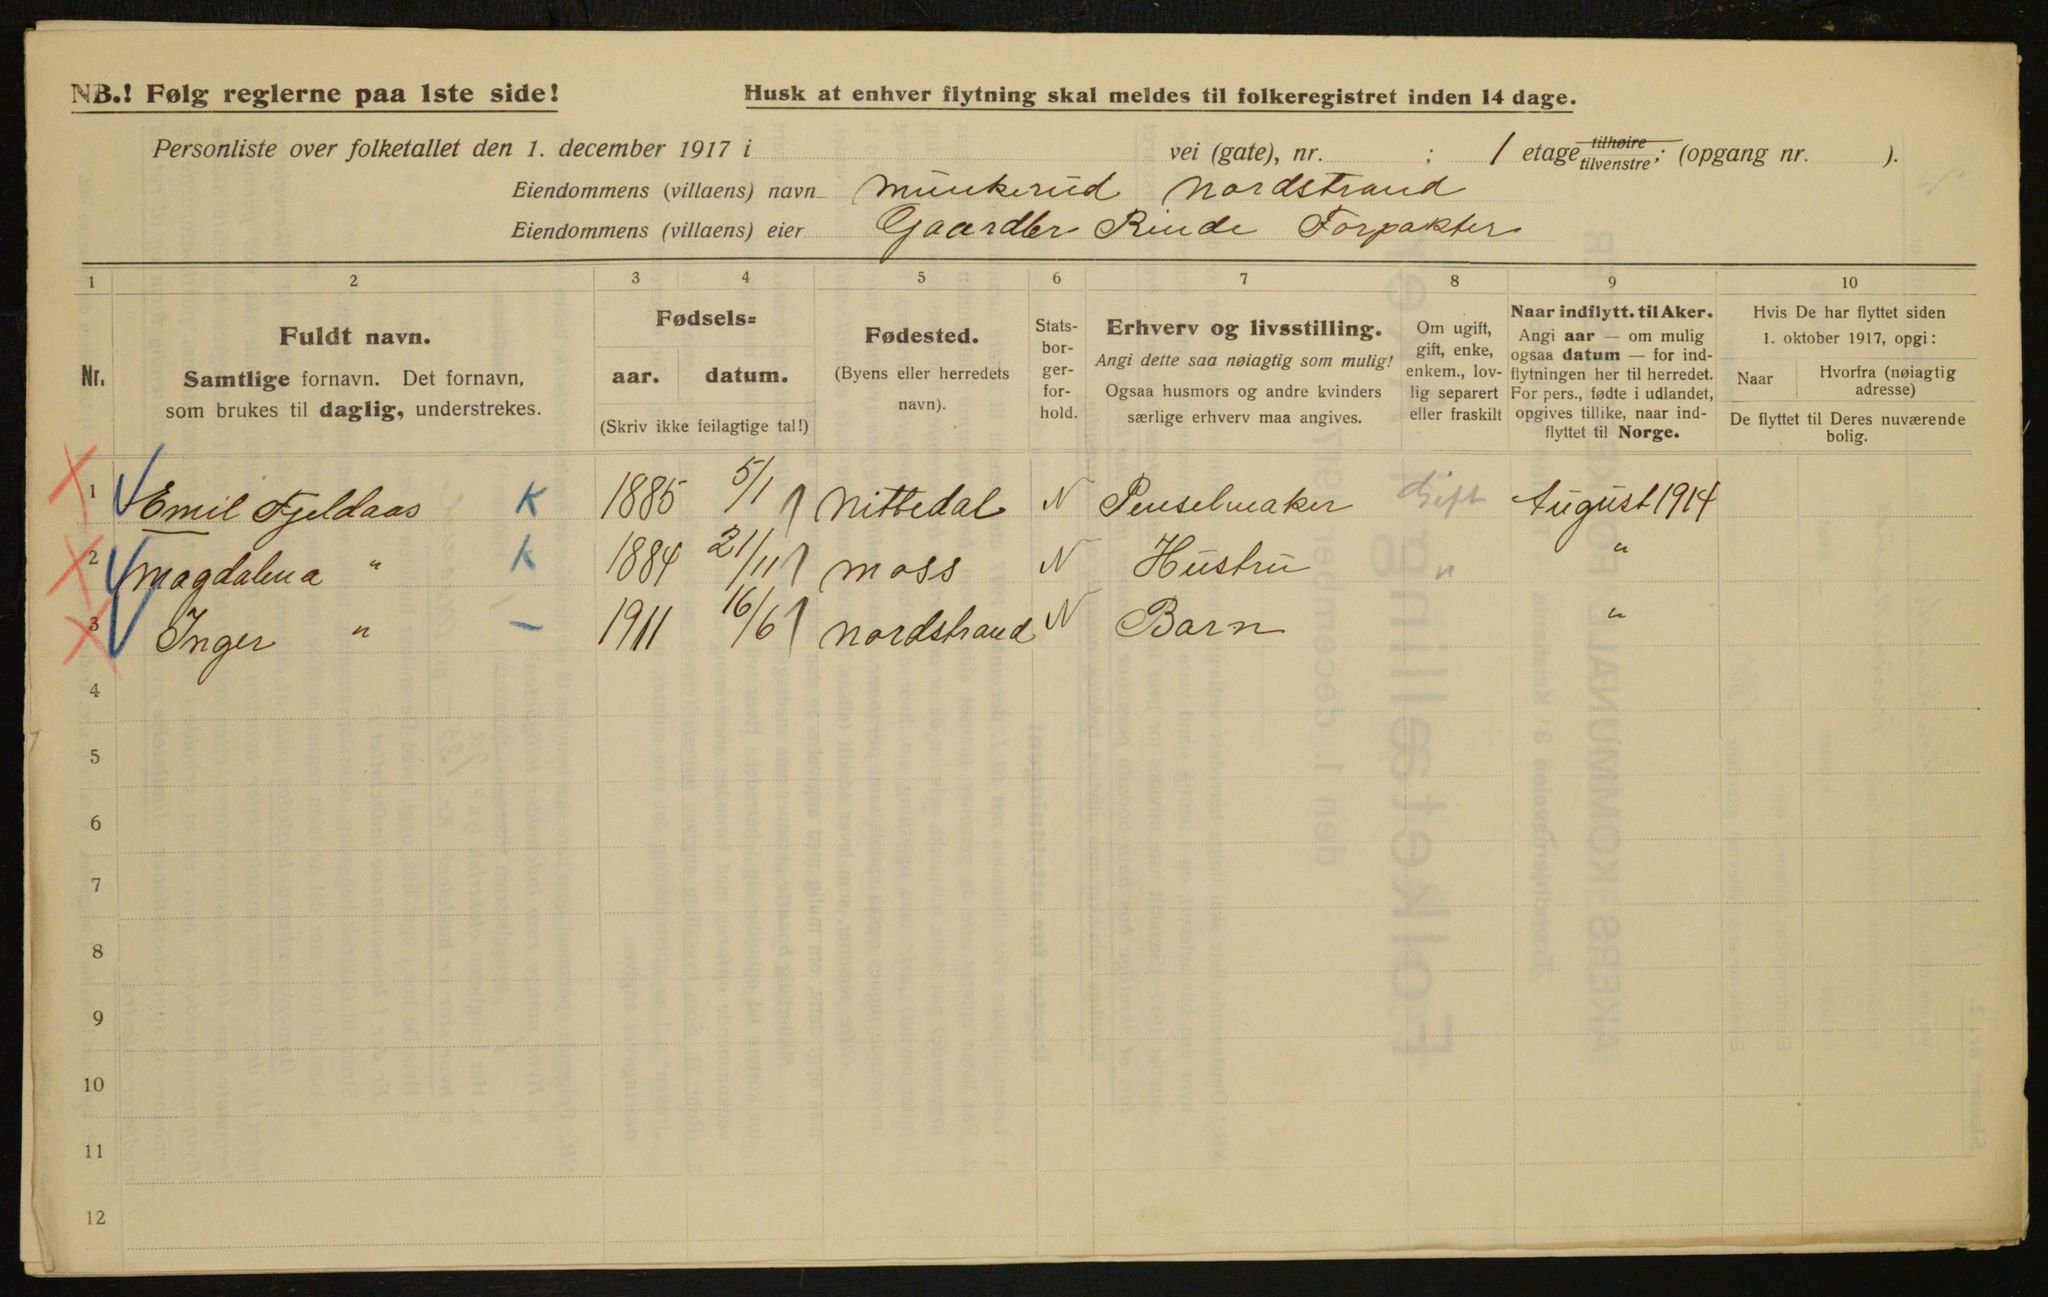 NB.! Følg reglerne paa 1ste side!
Husk at enhver flytning skal meldes til folkeregistret inden 14 dage.
Personliste over folketallet den 1. december 1917 i vei (gate), nr. ; 1 etage tilhøire tilvenstre; (opgang nr. ).
Eiendommens (villaens) navn Munkerud Nordstrand
Eiendommens (villaens) eier Gaardbr Rinde Forpakter
1 2 3 4 5 6 7 8 9 10
Nr.
Fuldt navn.
Samtlige fornavn. Det fornavn,
som brukes til daglig, understrekes.
Fødsels=
aar. datum.
(Skriv ikke feilagtige tal!)
Fødested.
(Byens eller herredets
navn).
Stats-
bor-
ger-
for-
hold.
Erhverv og livsstilling.
Angi dette saa nøiagtig som mulig!
Ogsaa husmors og andre kvinders
særlige erhverv maa angives.
Om ugift,
gift, enke,
enkem., lov-
lig separert
eller fraskilt
Naar indflytt. til Aker.
Angi aar — om mulig
ogsaa datum — for ind-
flytningen her til herredet.
For pers., fødte i udlandet,
opgives tillike, naar ind-
flyttet til Norge.
Hvis De har flyttet siden
1. oktober 1917, opgi:
Naar
Hvorfra (nøiagtig
adresse)
De flyttet til Deres nuværende
bolig.
1 Emil Fjeldaas K 1885 5/1 Nittedal N Penselmaker Gift August 1914
2 Magdalena " K 1884 21/11 Moss N Hustru " "
3 Inger " – 1911 16/6 Nordstrand N Barn "
4
5
6
7
8
9
10
11
12